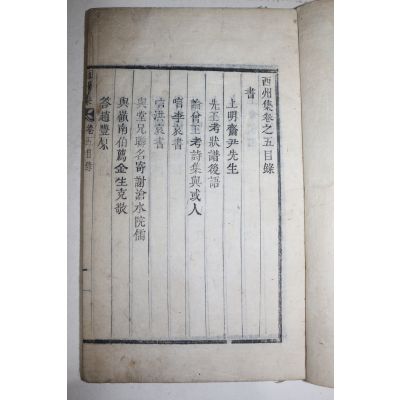 西州集卷之五目錄
書
上明齋尹先生
先王考狀譜後語
論曾王考詩集與或人
唁李哀書
唁洪哀書
與堂兄聯名寄謝滄水院儒
與嶺南伯薦金生克敬
答趙豐原
卷五目錄